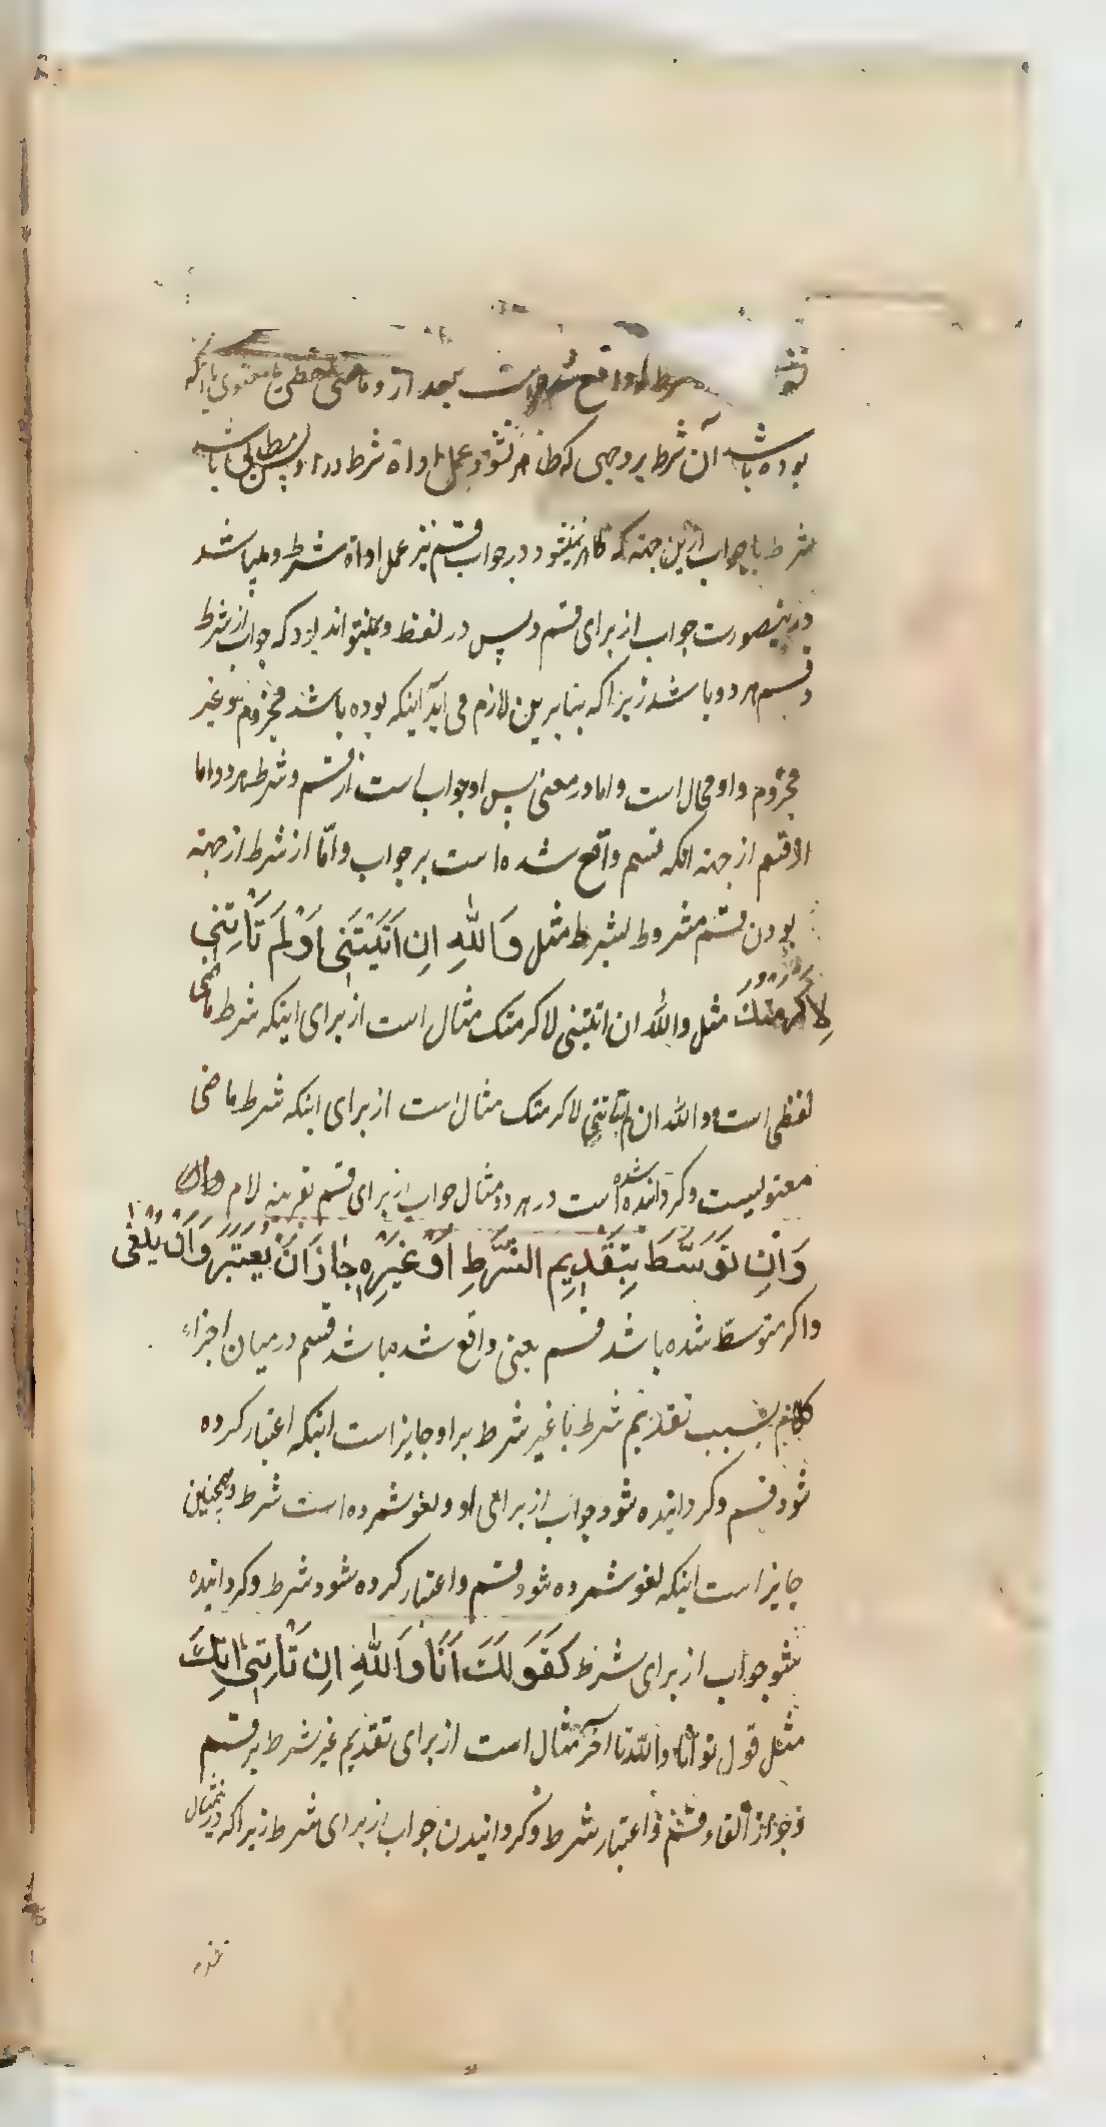 شرط او واقع شده است بعد از و ماضی لفظی یا معنوی یا آنکه
بوده باشد آن شرط بر وجهی که ظاهر نشود عمل اداة شرط در او پس مطابق باشد
شرط با جواب ازین جهته که ظاهر نمیشود در جواب قسم نیز عمل اداة شرط و میباشد
درینصورت جواب از برای قسم و پس در لفظ و نمیتواند بود که جواب از شرط
و قسم هر دو باشد زیرا که بنابرین لازم می آید اینکه بوده باشد مجزوم و غیر
مجزوم و او محال است و اما در معنی پس او جواب است از قسم و شرط هر دو اما
از قسم از جهته انکه قسم واقع شده است بر جواب و امّا از شرط از جهته
بودن قسم مشروط بشرط مثل وَاللّٰهِ اِن اَتَیْتَنِی اَوْ لَمْ تَأْتِنِی
لَاَکْرَمْتُکَ مثل واللّه ان اتیتنی لاکرمتک مثال است از برای اینکه شرط ماضی
لفظی است و واللّه ان لم تاتنی لاکرمتک مثال است از برای اینکه شرط ماضی
معنویست و کردانیده شده است در هر دو مثال جواب از برای قسم بقرینه لام
وَاِن تَوَسَّطَ بِتَقْدِیمِ الشَّرْطِ اَوْ غَیْرِهِ جَازَ اَنْ یُعْتَبَرَ وَاَنْ یُلْغٰی
و اکر متوسط شده باشد قسم یعنی واقع شده باشد قسم در میان اجزاء
کلام بسبب تقدیم شرط یا غیر شرط بر او جایز است اینکه اعتبار کرده
شود قسم و کردانیده شود جواب از برای او و لغو شمرده است شرط و همچنین
جایز است اینکه لغو شمرده شود قسم و اعتبار کرده شود شرط و کردانیده
شود جواب از برای شرط کَقَوْلِکَ اَنَا وَاللّٰهِ اِن تَأْتِنِی آتِکَ
مثل قول تو انا واللّه تا آخر مثال است از برای تقدیم غیر شرط بر قسم
و جواز الغاء قسم و اعتبار شرط و کردانیدن جواب از برای شرط زیرا که درینمثال